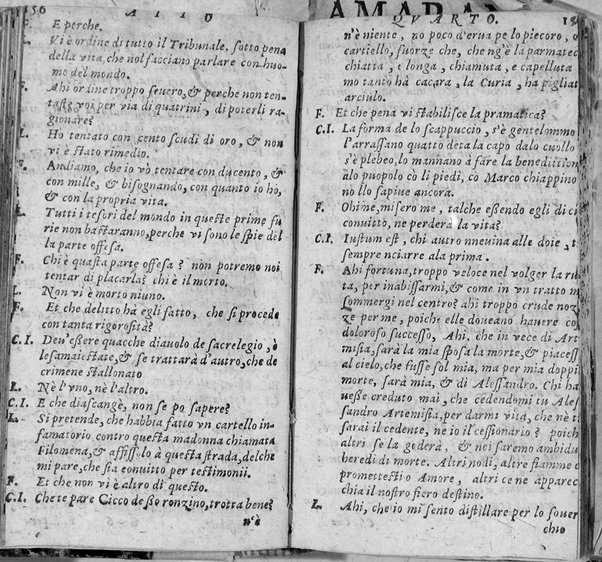 AMARAN
156 ATTO
F. E perche.
L. Vi è ordine di tutto il Tribunale, sotto pena
della vita, che nol facciano parlare con huo-
mo del mondo.
F. Ahi ordine troppo severo, & perche non ten-
taste voi per via di quatrini, di poterli ra-
gionare?
L. Ho tentato con cento scudi di oro, & non
vi è stato rimedio.
F. Andiamo, che io vò tentare con ducento, &
con mille, & bisognando, con quanto io ho,
& con la propria vita.
L. Tutti i tesori del mondo in queste prime fu
rie non bastaranno, perche vi sono le spie del
la parte offesa.
F. Chi è questa parte offesa? non potremo noi
tentar di placarla? chi è il morto.
L. Non vi è morto niuno.
F. Et che delitto hà egli fatto, che si procede
con tanta rigorosità?
C.I. Deu'essere quacche diauolo de sacrelegio, ò
lesamaiestate, & se trattarà d'autro, che de
crimene stallonato
L. Nè l'vno, nè l'altro.
C.I. E che diascangè, non se po sapere?
L. Si pretende, che habbia fatto vn cartello in-
famatorio contro questa madonna chiamata
Filomena, & affisslo à questa strada, del che
mi pare, che sia conuitto per testimonii.
F. Et che non vi è altro di questo.
C.I. Che te pare Cicco deßo ronzino, trotta bene?
n'è
QVARTO. 15
n'è niente, no poco d'erua pe lo piecoro, o
cartiello, fuorze che, che ng'è la parmatec
chiatta, e longa, chiamuta, e capelluta
mo tanto hà cacara, la Curia, ha pigliat
arciulo.
F. Et che pena vi stabilisce la pramatica?
C.I. La forma de lo scappuccio, s'è gentelommo
l'arrassano quatto deta la capo dalo cuollo
s'è plebeo, lo mannano à fare la benedittion
alo puopolo cò li piedi, cò Marco chiappino
nò llo sapiue ancora.
F. Ohime, misero me, talche eßendo egli di ci
conuitto, ne perderà la vita?
C.I. Iustum est, chi autro nneuina alle doie, t
sempre nciarre ala prima.
F. Ahi fortuna, troppo veloce nel volger la ru
ta, per inabissarmi, & come in vn tratto mi
sommergi nel centro? ahi troppo crude noz
ze per me, poiche elle doueano hauere co
doloroso successo, Ahi, che in vece di Art
misia, sarà la mia sposa la morte, & piacess
al cielo, che fusse sol mia, ma per mia doppi
morte, sarà mia, & di Alessandro. Chi ha
ueße creduto mai, che cedendomi tu Ales
sandro Artemisia, per darmi vita, che nè ti
sarai il cedente, ne io il cessionario? poich
altri se la goderà, & noi saremo ambidu
heredi di morte. Altri nodi, altre fiamme o
promettesti o Amore, altri ce ne apparec
chia il nostro fiero destino.
L. Ahi, che io mi sento distillare per lo souer
chio